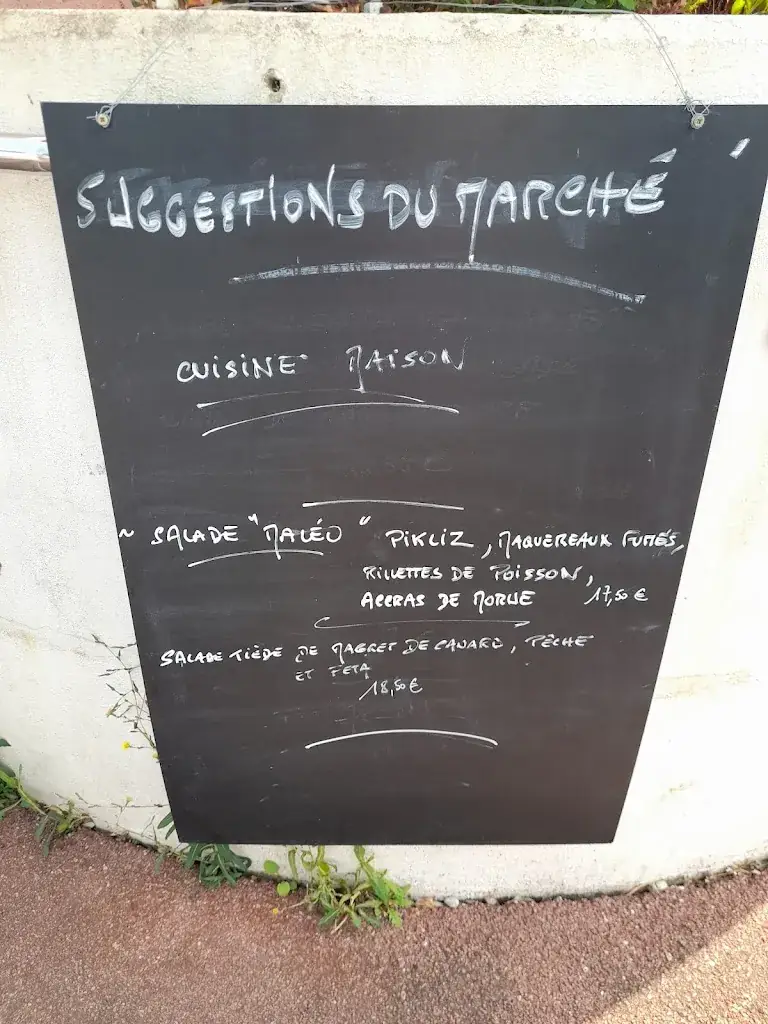 SUGGESTIONS DU MARCHÉ
CUISINE MAISON
~ SALADE "MALÉO" PIKLIZ, MAQUEREAUX FUMÉS,
RILLETTES DE POISSON,
ACCRAS DE MORUE 17,50 €
SALADE TIÈDE DE MAGRET DE CANARD, PÊCHE
ET FETA
18,50 €